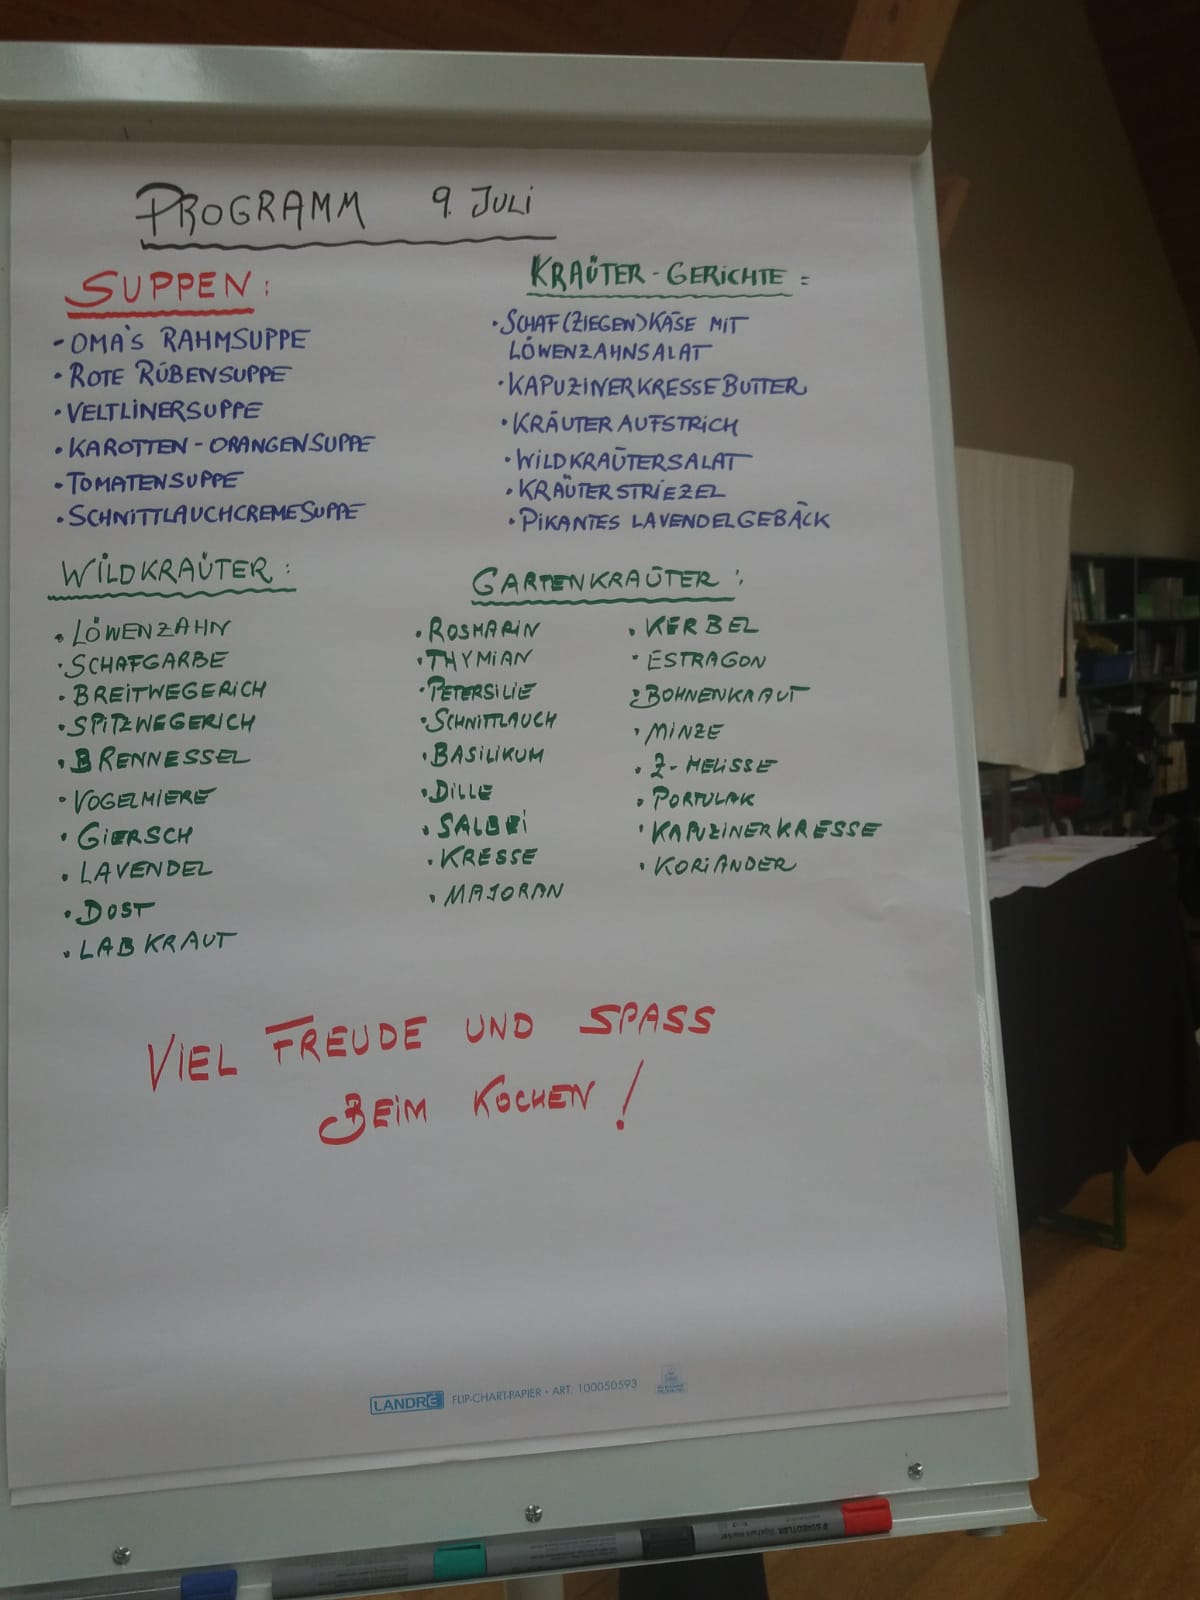 PROGRAMM 9. JULI
SUPPEN:
• OMA'S RAHMSUPPE
• ROTE RÜBENSUPPE
• VELTLINERSUPPE
• KAROTTEN-ORANGENSUPPE
• TOMATENSUPPE
• SCHNITTLAUCHCREMESUPPE
KRÄUTER-GERICHTE:
• SCHAF(ZIEGEN)KÄSE MIT
LÖWENZAHNSALAT
• KAPUZINERKRESSEBUTTER
• KRÄUTERAUFSTRICH
• WILDKRÄUTERSALAT
• KRÄUTERSTRIEZEL
• PIKANTES LAVENDELGEBÄCK
WILDKRÄUTER:
• LÖWENZAHN
• SCHAFGARBE
• BREITWEGERICH
• SPITZWEGERICH
• BRENNESSEL
• VOGELMIERE
• GIERSCH
• LAVENDEL
• DOST
• LABKRAUT
GARTENKRÄUTER:
• ROSMARIN
• THYMIAN
• PETERSILIE
• SCHNITTLAUCH
• BASILIKUM
• DILLE
• SALBEI
• KRESSE
• MAJORAN
• KERBEL
• ESTRAGON
• BOHNENKRAUT
• MINZE
• Z-MELISSE
• PORTULAK
• KAPUZINERKRESSE
• KORIANDER
VIEL FREUDE UND SPASS
BEIM KOCHEN!
LANDRÉ FLIP-CHART-PAPIER • ART. 100050593
STAEDTLER flipchart marker